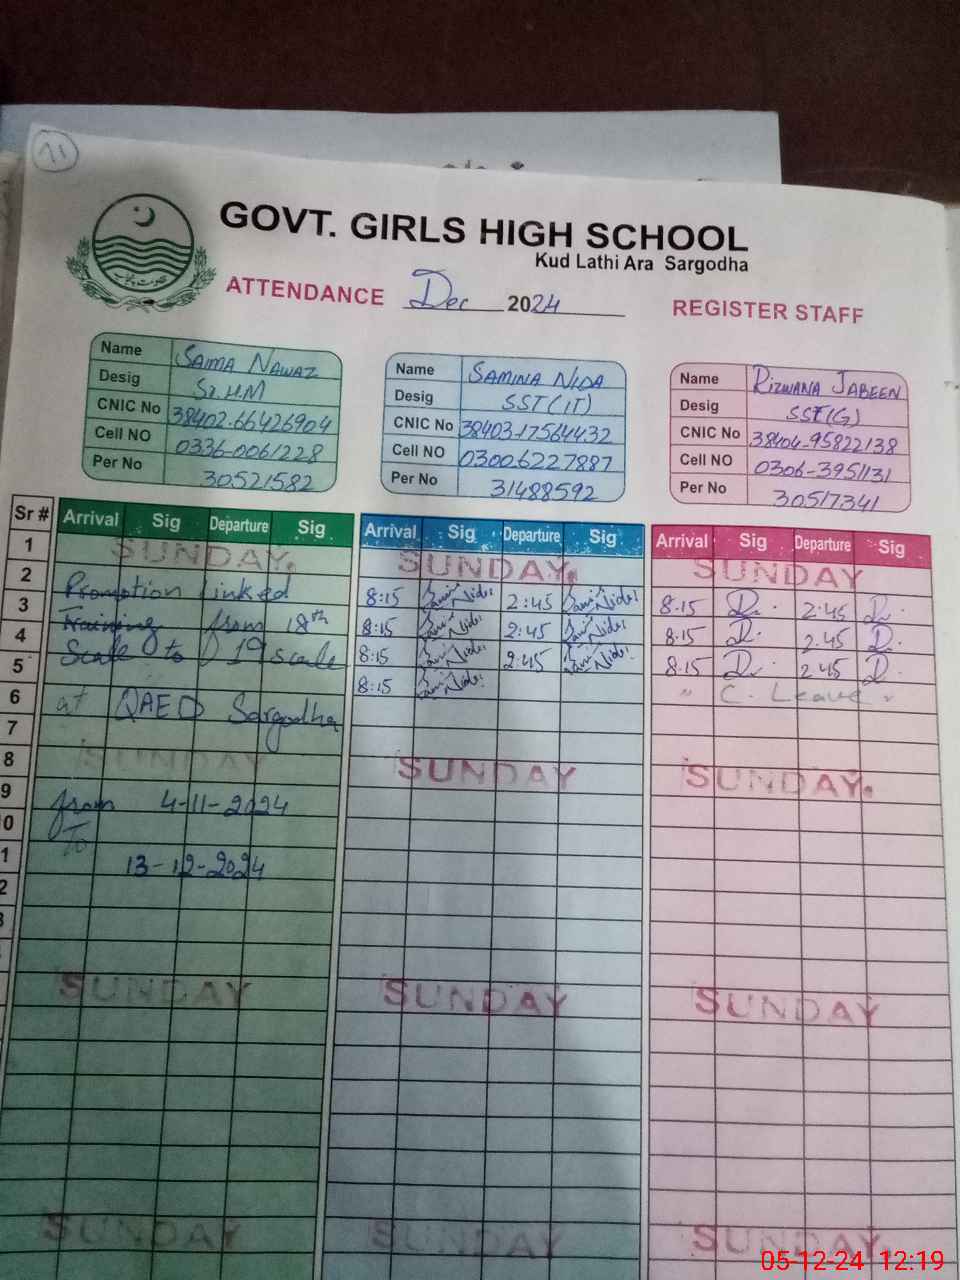 11
GOVT. GIRLS HIGH SCHOOL
Kud Lathi Ara Sargodha
ATTENDANCE Dec 2024 REGISTER STAFF
Name SAIMA NAWAZ
Desig Sr. H.M
CNIC No 38402-66426904
Cell NO 0336-0061228
Per No 30521582
Name SAMINA NIDA
Desig SST (IT)
CNIC No 38403-17564432
Cell NO 03006227887
Per No 31488592
Name RIZWANA JABEEN
Desig SST(G)
CNIC No 38404-95822138
Cell NO 0306-3951131
Per No 30517341
Sr # Arrival Sig Departure Sig Arrival Sig Departure Sig Arrival Sig Departure Sig
1 SUNDAY SUNDAY SUNDAY
2 Promotion linked 8:15 2:45 8:15 2:45
3 Training from 18th 8:15 2:45 8:15 2.45
4 Scale to 19 scale 8:15 2:45 8:15 2 45
5 8:15 " C. Leave
6 at QAED Sargodha
7
8 SUNDAY SUNDAY SUNDAY
9 from 4-11-2024
0 To
1 13-12-2024
2
3
SUNDAY SUNDAY SUNDAY
SUNDAY SUNDAY SUNDAY
05-12-24 12:19